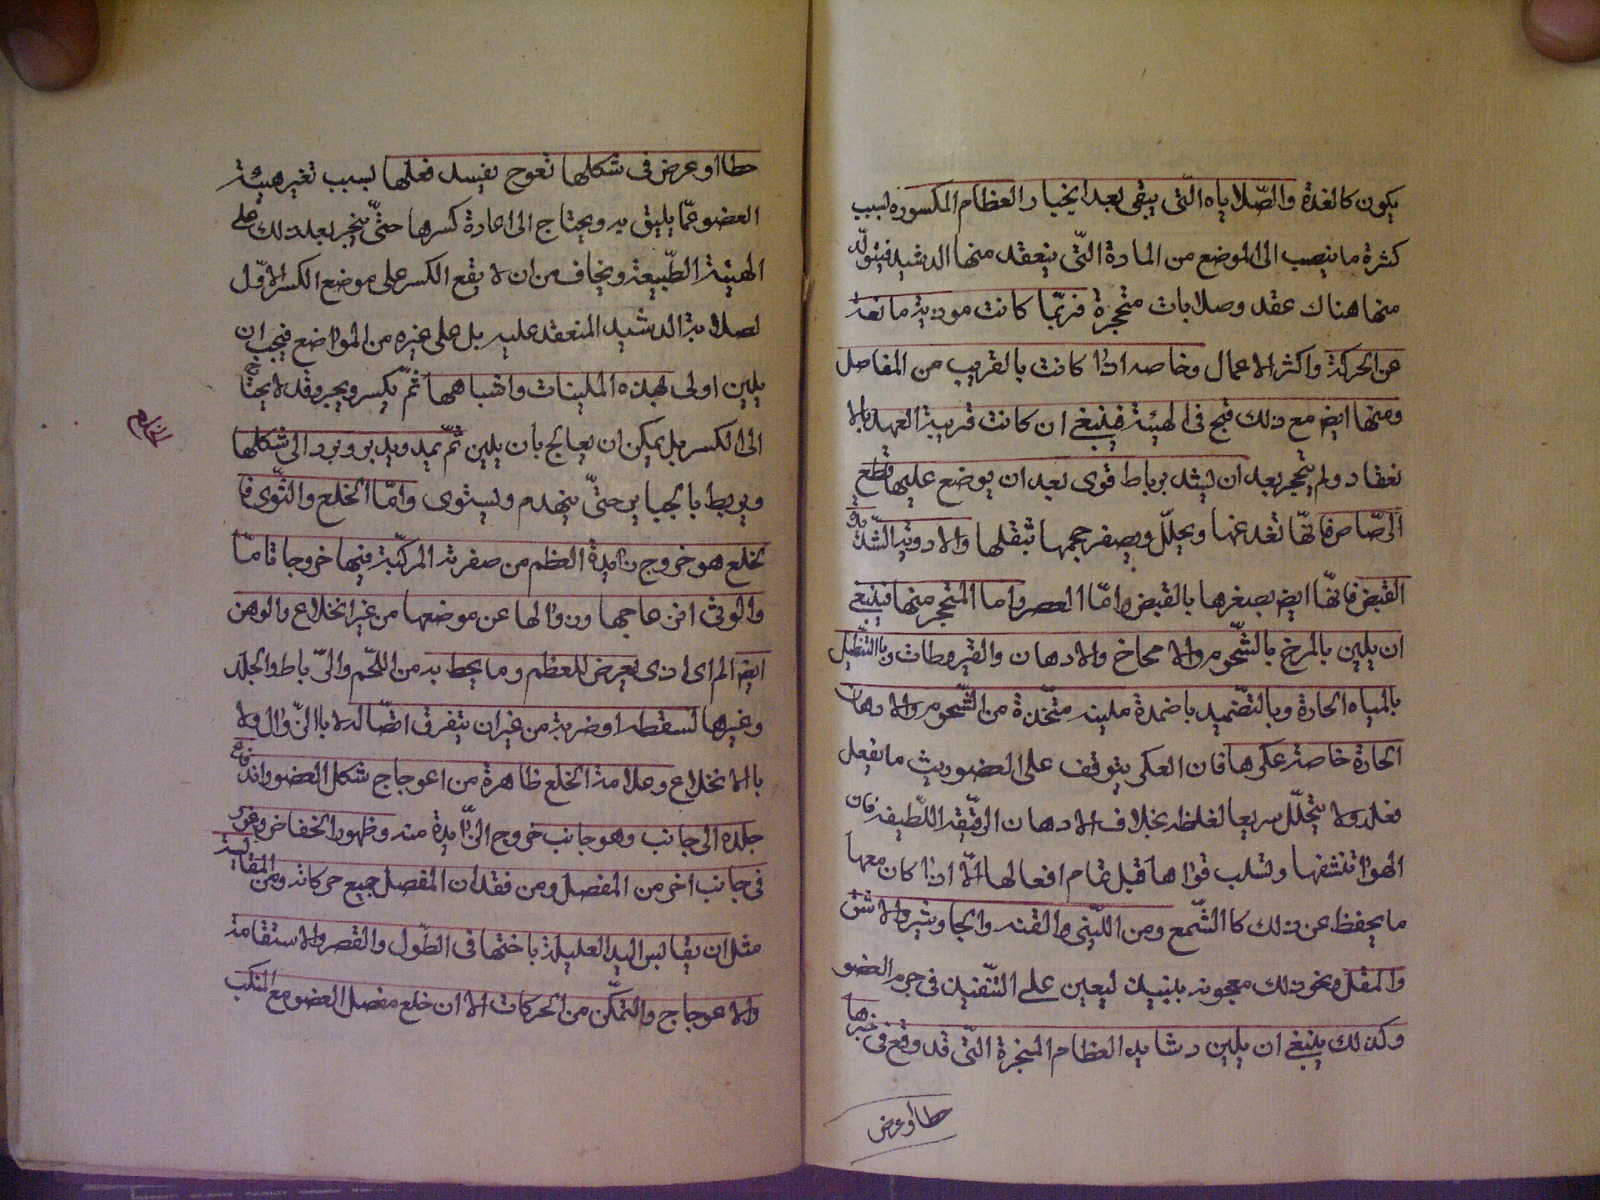 يكون كالغدة والصّلاياه الّتى يبقى بعد انجبار العظام المكسوره لسبب
كثرة ما ينصب الى الموضع من المادة الّتى ينعقد منها الدشيد فيتولّد
منها هناك عقد وصلابات متحجرة فربّما كانت موذية مانعة
عن الحركة واكثر الاعمال وخاصه اذا كانت بالقريب من المفاصل
ومنها ايض مع ذلك قبح فى الهيئة فينبغى ان كانت قريبة العهد بالا
نعقاد ولم يتحجر بعد ان يشد برباط قوى بعد ان يوضع عليها قطع
الرّصاص فانّها تغدغها ويحلّل ويصغر حجمها بثقلها والادوية الشّديدة
القبض فانّها ايض يصغرها بالقبض وامّا العصر واما المتحجر منها فينبغى
ان يلين بالمرخ بالشّحوم والامخاخ والادهان والقيروطات وبالتنطيل
بالمياه الحارة وبالتضميد باضمدة ملينه متّخذة من الشّحوم والادهان
الحارة خاصة عكرها فان العكر يتوقف على العضو ريث ما يفعل
فعله ولا يتحلّل سريعا لغلظه بخلاف الادهان الرقيقه اللّطيفه فان
الهوا تنشفها ولسلب قواها قبل تمام افعالها الّا اذا كان معها
ما يحفظ عن ذلك كا الشّمع ومن اللّبنى والقنه والجاوشير والاشق
والمقل ونحو ذلك معجونه ليعين على التّنفيذ فى جرم العضو
وكذلك ينبغى ان يلين دشايد العظام المنجبرة الّتى قد وقع فى جبرها
خطا او عرض
خطا او عرض فى شكلها تعوج يفسد فعلها لسبب تغير هيئة
العضو عمّا يليق به ويحتاج الى اعادة كسرها حتّى ينجبر بعد ذلك على
الهيئة الطّبيعة ويخاف من ان لا يقع الكسر على موضع الكسر الاوّل
لصلابة الدشيد المنعقد عليه بل على غيره من المواضع فيجب ان
يلين اولى بهذه الملينات واشباهها ثمّ يكسر ويجبر وقد لا يحتاج
الى الكسر بل يمكن ان يعالج بان يلين ثمّ يمد ويدبر ويرد الى شكلها
ويربط بالجباير حتّى ينهدم ويستوى وامّا الخلع والوثى فا
لخلع هو خروج زايدة العظم من صفرته المركّبة فيها خروجا تامّا
والوثى انزعاجها وزوالها عن موضعها من غير انخلاع والوهن
ايض الم اى اذى يعرض للعظم وما يحيط به من اللّحم والرّباط والجلد
وغيرها لسقطه او ضربة من غير ان يتفرق اتصّاله لا باالزّوال ولا
باالانخلاع وعلامة الخلع ظاهرة من اعوجاج شكل العضو واندفاع
جلده الى جانب وهو جانب خروج الزّايدة منه وظهور انخفاض وغور
فى جانب اخر من المفصل ومن فقدان المفصل جميع حركاته ومن المقايسة
مثل ان يقايس اليد العليلة باختها فى الطّول والقصر والاستقامة
والاعوجاج والتمكّن من الحركات الا ان خلع مفصل العضو مع المنكب